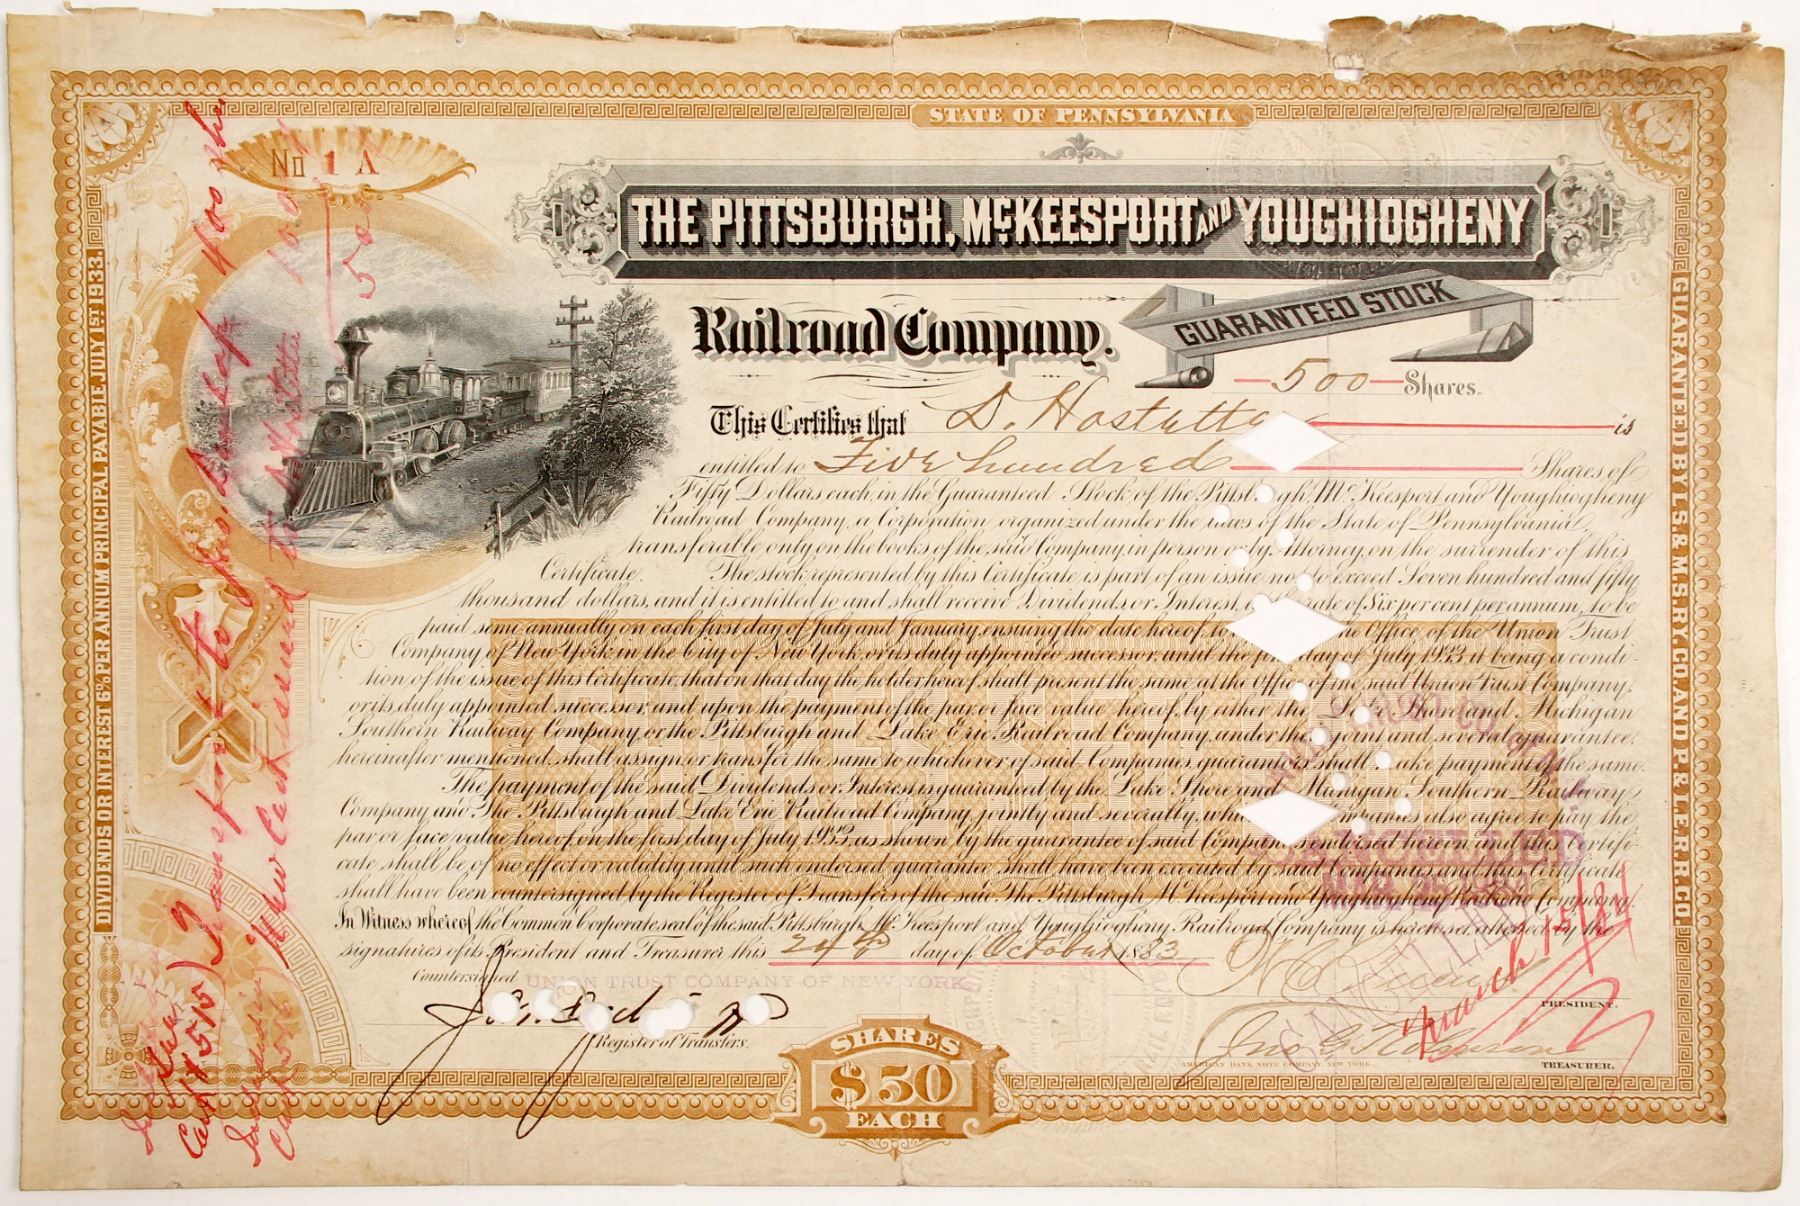 STATE OF PENNSYLVANIA
No 1 A
THE PITTSBURGH, McKEESPORT AND YOUGHIOGHENY
Railroad Company.
GUARANTEED STOCK
500 Shares.
This Certifies that D. Hostetter is
entitled to Five hundred Shares of
Fifty Dollars each, in the Guaranteed Stock of the Pittsburgh, McKeesport and Youghiogheny
Railroad Company, a Corporation organized under the laws of the State of Pennsylvania,
transferable only on the books of the said Company, in person or by Attorney, on the surrender of this
Certificate. The stock represented by this Certificate is part of an issue not to exceed Seven hundred and fifty
thousand dollars, and it is entitled to and shall receive Dividends or Interest, at the rate of Six per cent per annum, to be
paid semi-annually on each first day of July and January, ensuing the date hereof, to the Office of the Union Trust
Company of New York in the City of New York or its duly appointed successor, until the first day of July 1933, it being a condi-
tion of the issue of this Certificate, that on that day the holder hereof shall present the same, at the Office of the said Union Trust Company,
or its duly appointed successor, and upon the payment of the par or face value hereof, by either the Lake Shore and Michigan
Southern Railway Company or the Pittsburgh and Lake Erie Railroad Company, under the joint and several guarantee,
hereinafter mentioned, shall assign or transfer the same to whichever of said Companies, guarantors shall make payment of the same.
The payment of the said Dividends or Interest is guaranteed by the Lake Shore and Michigan Southern Railway
Company and The Pittsburgh and Lake Erie Railroad Company, jointly and severally, which Companies also agree to pay the
par or face value hereof, on the first day of July 1933, as shown by the guarantee of said Companies endorsed hereon and this Certifi-
cate shall be of no effect or validity until such endorsed guarantee shall have been executed by said Companies and this Certificate
shall have been countersigned by the Register of Transfers of the said The Pittsburgh McKeesport and Youghiogheny Railroad Company.
In Witness whereof the Common Corporate seal of the said Pittsburgh, McKeesport and Youghiogheny Railroad Company is hereto set, attested by the
signatures of its President and Treasurer this 24th day of October 1883
Countersigned
UNION TRUST COMPANY OF NEW YORK
Register of Transfers.
PRESIDENT.
Jno G. Robinson
TREASURER.
AMERICAN BANK NOTE COMPANY, NEW YORK.
SHARES
$50
EACH
CANCELLED
CANCELLED
March 15/84
DIVIDENDS OR INTEREST 6% PER ANNUM PRINCIPAL PAYABLE, JULY 1ST 1933.
GUARANTEED BY L.S. & M.S. RY. CO. AND P. & L.E. R.R. CO.
400 sh
500
Transfer to
New Cert issued to
Cert 4515
Cert 516